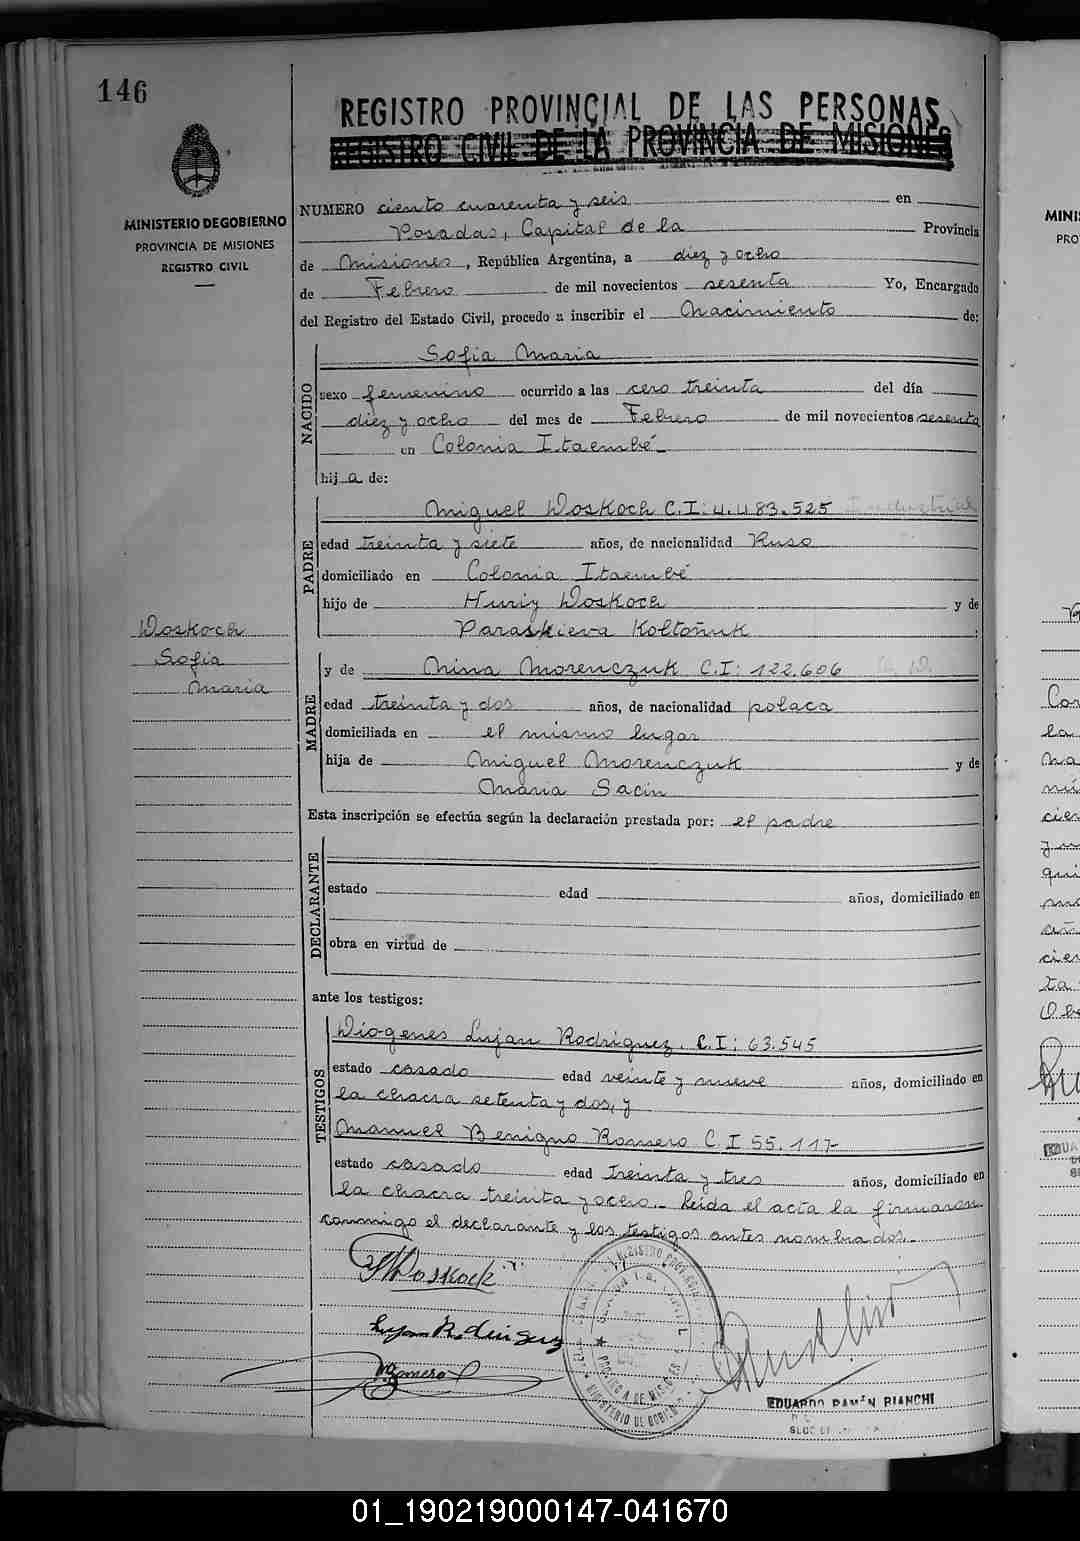 146
REGISTRO PROVINCIAL DE LAS PERSONAS
REGISTRO CIVIL DE LA PROVINCIA DE MISIONES
MINISTERIO DE GOBIERNO
PROVINCIA DE MISIONES
REGISTRO CIVIL
NUMERO ciento cuarenta y seis en
Posadas, Capital de la Provincia
de Misiones, República Argentina, a diez y ocho
de Febrero de mil novecientos sesenta Yo, Encargado
del Registro del Estado Civil, procedo a inscribir el Nacimiento de:
NACIDO
Sofia Maria
sexo femenino ocurrido a las cero treinta del día
diez y ocho del mes de Febrero de mil novecientos sesenta
en Colonia Itaembé
hija de:
PADRE
Miguel Woskoch C.I: 4.483.525 Industrial
edad treinta y siete años, de nacionalidad Ruso
domiciliado en Colonia Itaembé
hijo de Huriy Woskoch y de
Paraskieva Koltoñuk
Woskoch
Sofia
Maria
MADRE
y de Nina Morenczuk C.I: 122.606
edad treinta y dos años, de nacionalidad polaca
domiciliada en el mismo lugar
hija de Miguel Morenczuk y de
Maria Sacin
Esta inscripción se efectúa según la declaración prestada por: el padre
DECLARANTE
estado edad años, domiciliado en
obra en virtud de
ante los testigos:
TESTIGOS
Diogenes Lujan Rodriguez. C.I: 63.545
estado casado edad veinte y nueve años, domiciliado en
la chacra setenta y dos, y
Manuel Benigno Romero C.I 55.117-
estado casado edad treinta y tres años, domiciliado en
la chacra treinta y ocho.- Leida el acta la firmaron
conmigo el declarante y los testigos antes nombrados.-
Woskoch
Lujan Rodriguez
Romero
PROVINCIA DE MISIONES
MINISTERIO DE GOBIERNO
EDUARDO RAMÓN BIANCHI
01_190219000147-041670